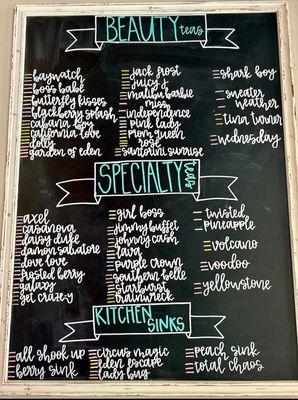 BEAUTY teas
baywatch
boss babe
butterfly kisses
blackberry splash
cabana boy
california love
dolly
garden of eden
jack frost
juicy j
malibu barbie
miss
independence
pink lady
prom queen
rose
santorini sunrise
shark boy
sweater
weather
tina turner
wednesday
SPECIALTY teas
axel
casanova
daisy duke
damon salvatore
dove love
frosted berry
galaxy
get craze-y
girl boss
jimmy buffet
johnny cash
lava
purple crown
southern belle
starburst
trainwreck
twisted
pineapple
volcano
voodoo
yellowstone
KITCHEN
SINKS
all shook up
berry sink
circus magic
eden escape
lady bug
peach sink
total chaos